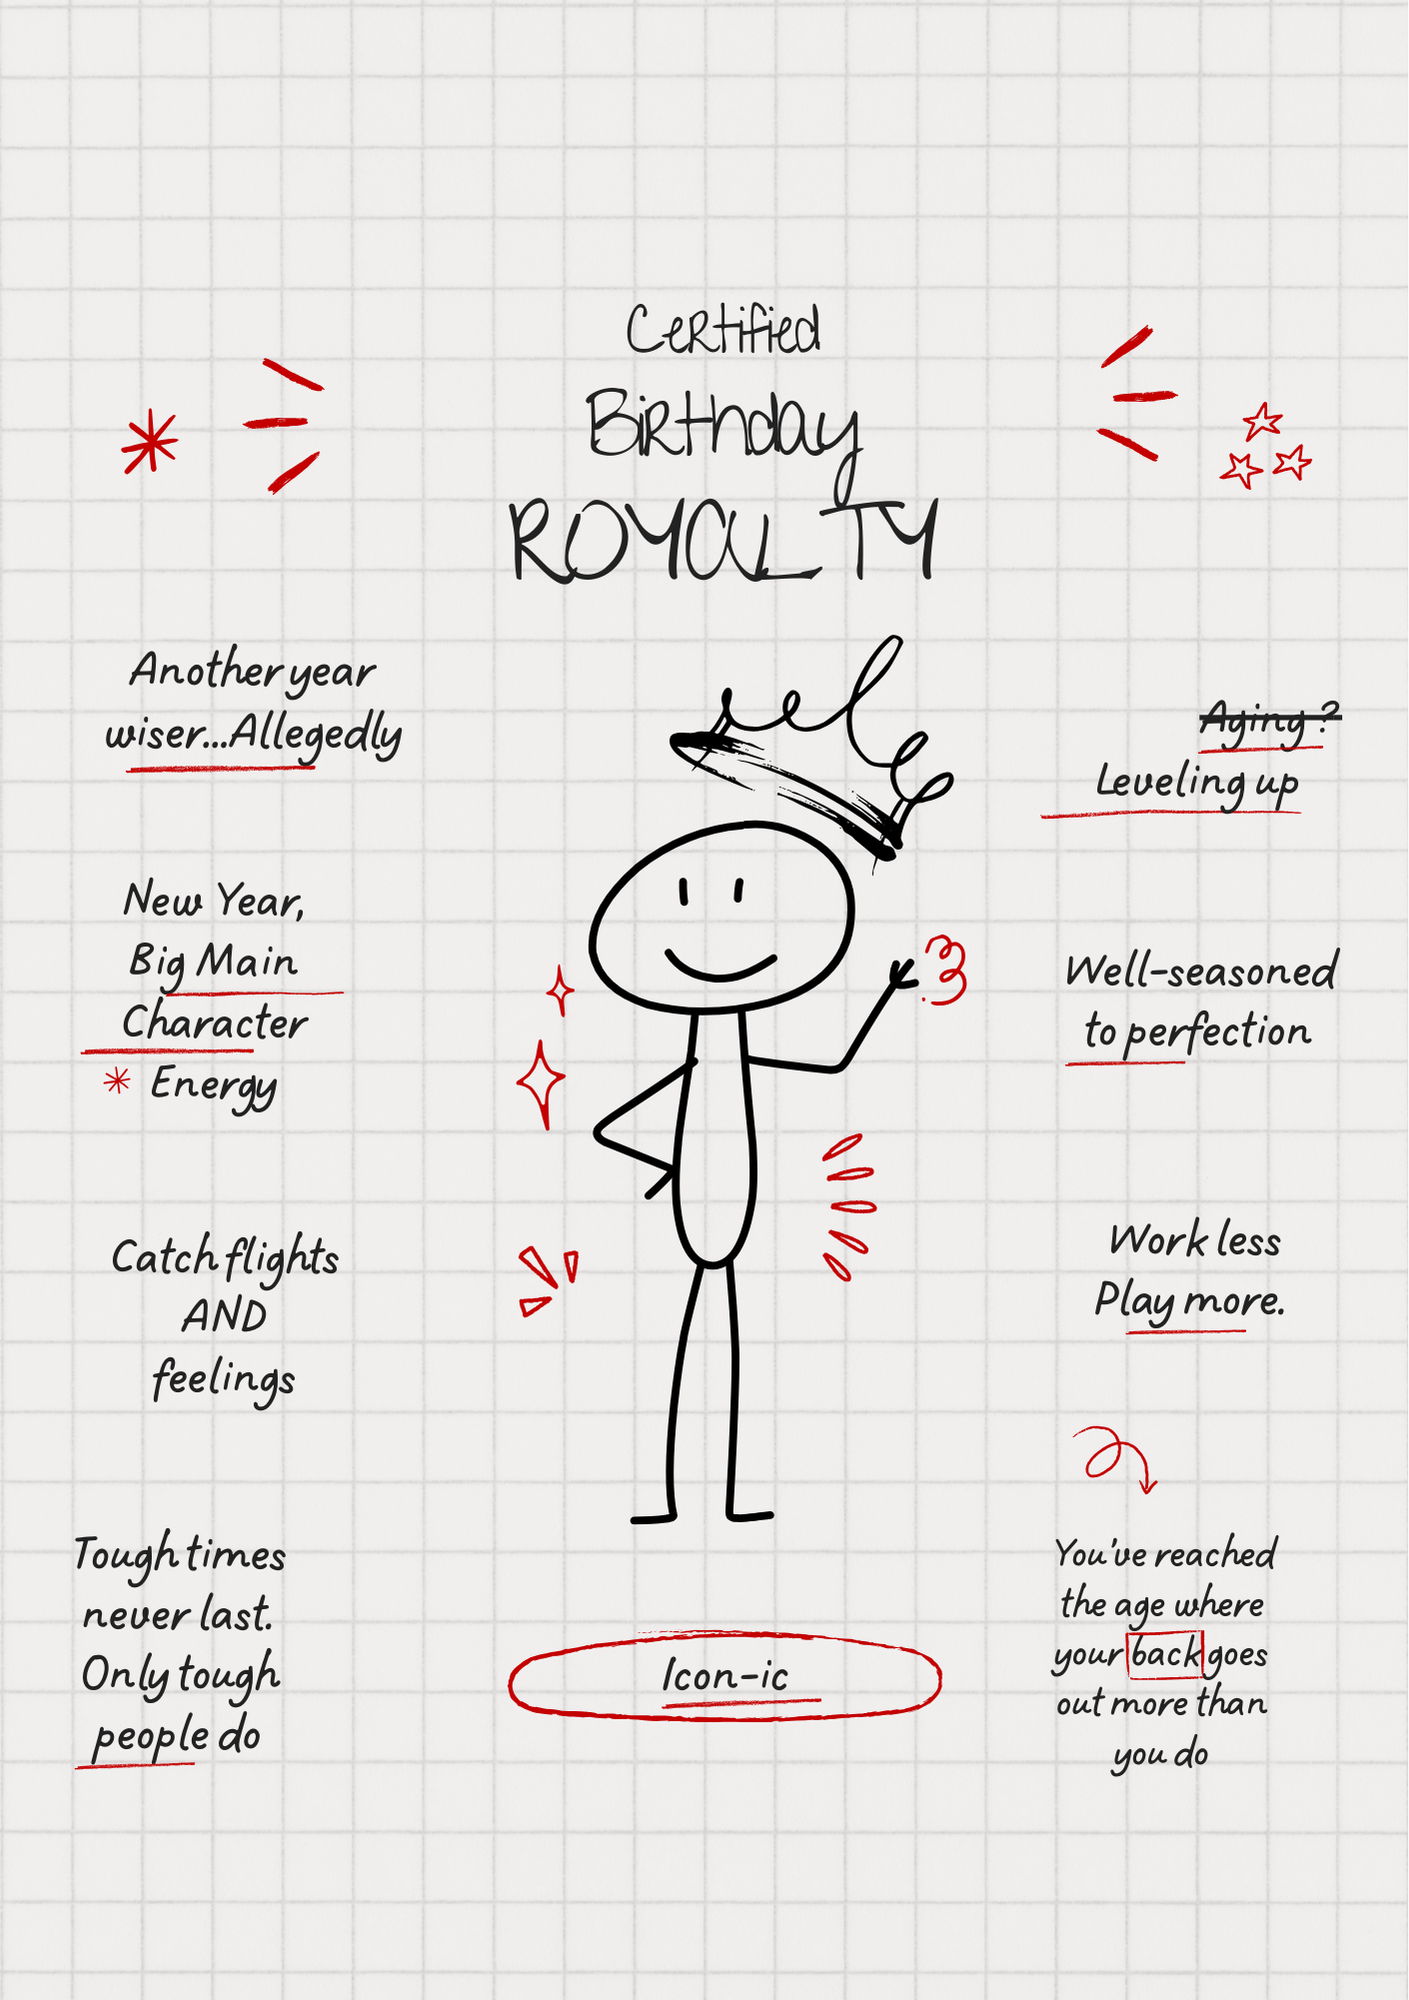 Certified
Birthday
ROYALTY
Another year
wiser...Allegedly
Aging ?
Leveling up
New Year,
Big Main
Character
Energy
Well-seasoned
to perfection
Catch flights
AND
feelings
Work less
Play more.
Tough times
never last.
Only tough
people do
Icon-ic
You've reached
the age where
your back goes
out more than
you do